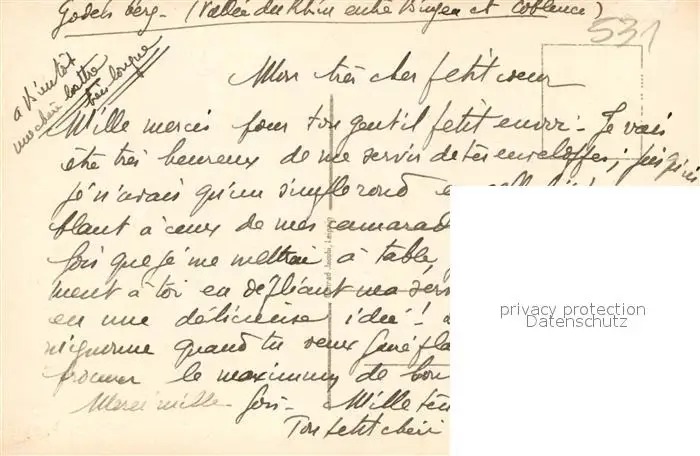 Godesberg - (Vallée du Rhin entre Bingen et Coblence)
531
a bientôt
une chère lettre
très longue
Mon très cher petit coeur
Mille mercis pour ton gentil petit envoi - Je vais
être très heureux de me servir de tes enveloppes ; puisque
je n'avais qu'un simple rond
blant à ceux de mes camarad
fois que je me mettrai à table
ment à toi en dépliant ma ser
en une délicieuse idée !
quand tu veux
trouver le maximum de bon
Merci mille fois - Mille ten
Ton petit chéri
Conrad Jacobi, Leipzig
privacy protection
Datenschutz